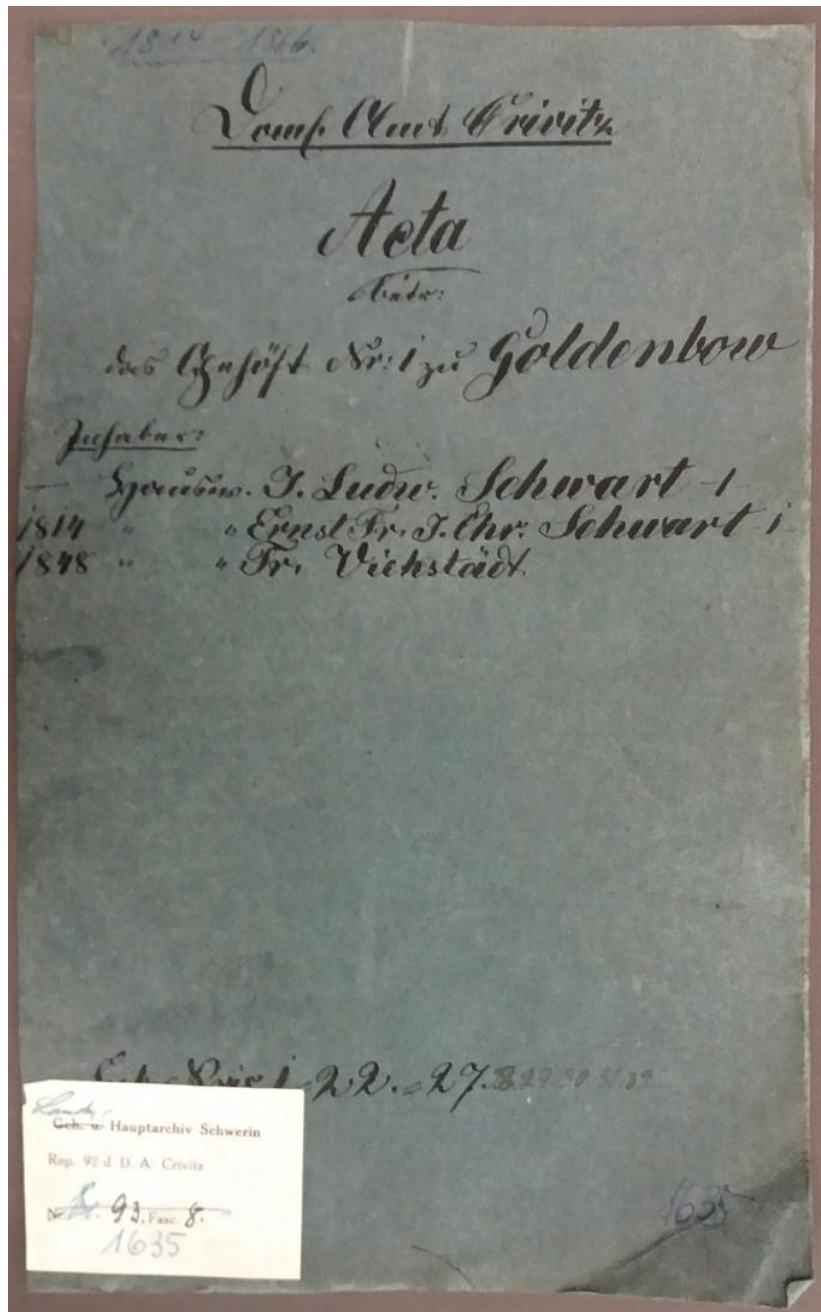 1814 - 1866.
Domf. Amt Crivitz
Acta
betr:
das Gehöft Nr: 1 zu Goldenbow
Inhaber:
— Hausw. J. Ludw. Schwart 1
1814 " " Ernst Fr. J. Chr. Schwart 1
1848 " " Fr. Viehstädt
1 - 22. - 27.
Landes
Geh. u. Hauptarchiv Schwerin
Rep. 92 d D. A. Crivitz
Nr. 93, Fasc. 8.
1635
1635